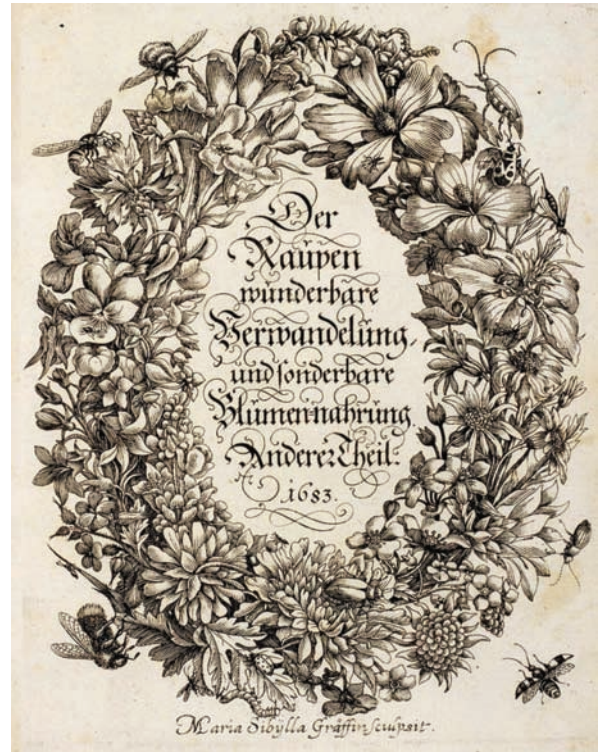 Der
Raupen
wunderbare
Verwandelung,
und sonderbare
Blumennahrung
Anderer Theil.
1683.
Maria Sibÿlla Gräffin sculpsit.